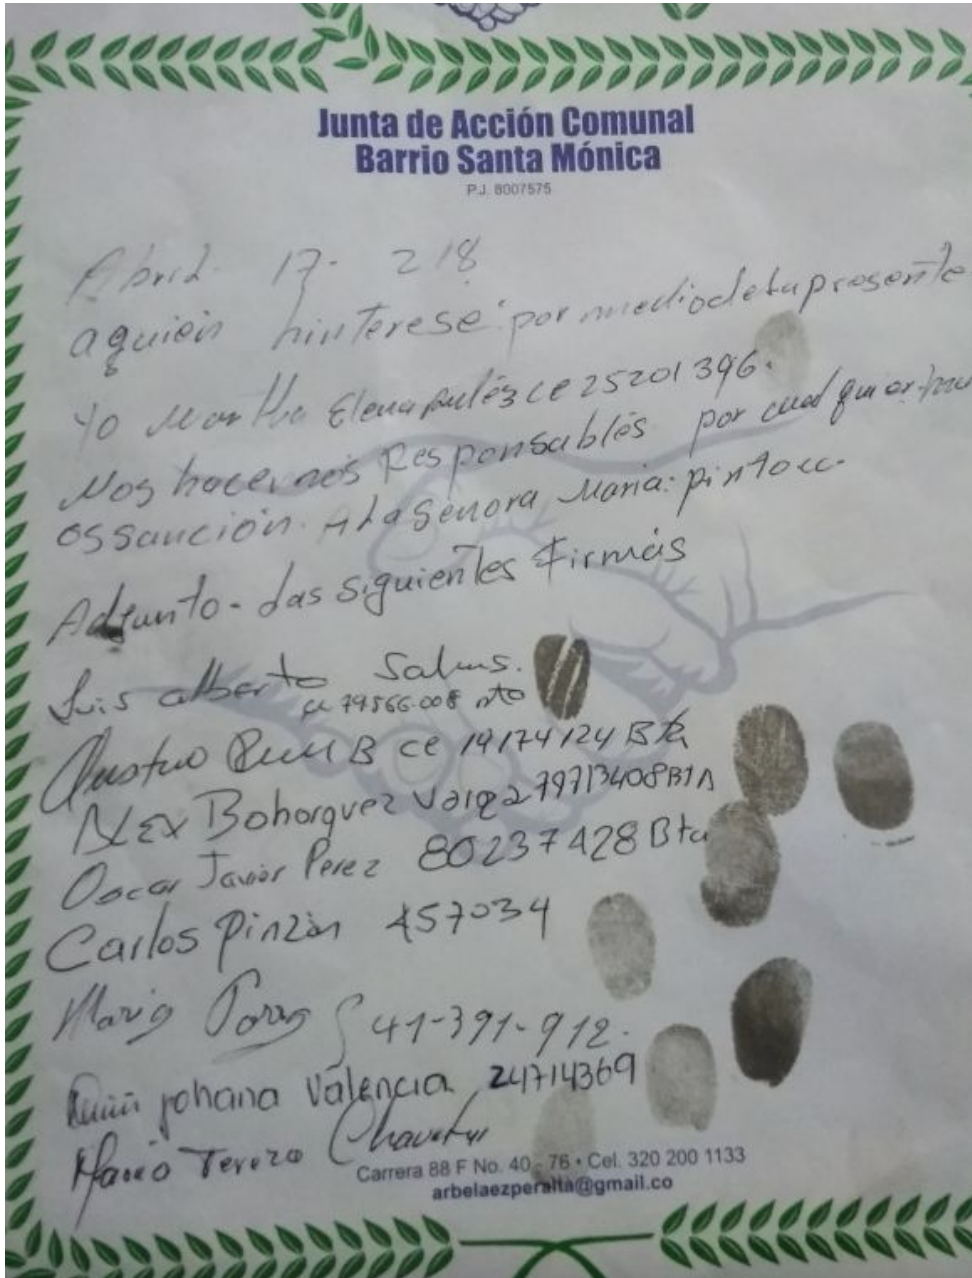 Junta de Acción Comunal
Barrio Santa Mónica
P.J. 8007575
Abril 17- 218
aquien hinterese por mediodelapresente
Yo Martha Elena cc 25201396.
Nos hacemos Responsables por cual quier
ossanción. A La Señora Maria. pinto cc.
Adjunto - Las siguientes Firmas
Luis alberto Salinas.
cc 79566.008 Bto
B cc 19174124 Bta
ALEX Bohorquez Varga 79713408 BTA
Oscar Javier Perez 80237428 Bta
Carlos Pinzón 457034
Maria 41-391-912.
johana Valencia 24714369
Maria Tereza
Carrera 88 F No. 40 - 76 • Cel. 320 200 1133
arbelaezperalta@gmail.co